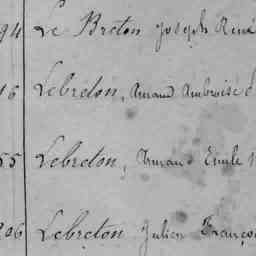 94 Le Breton Joseph René
16 Lebreton, Amand Ambroise
55 Lebreton, Armand Emile
206 Lebreton Julien Franço